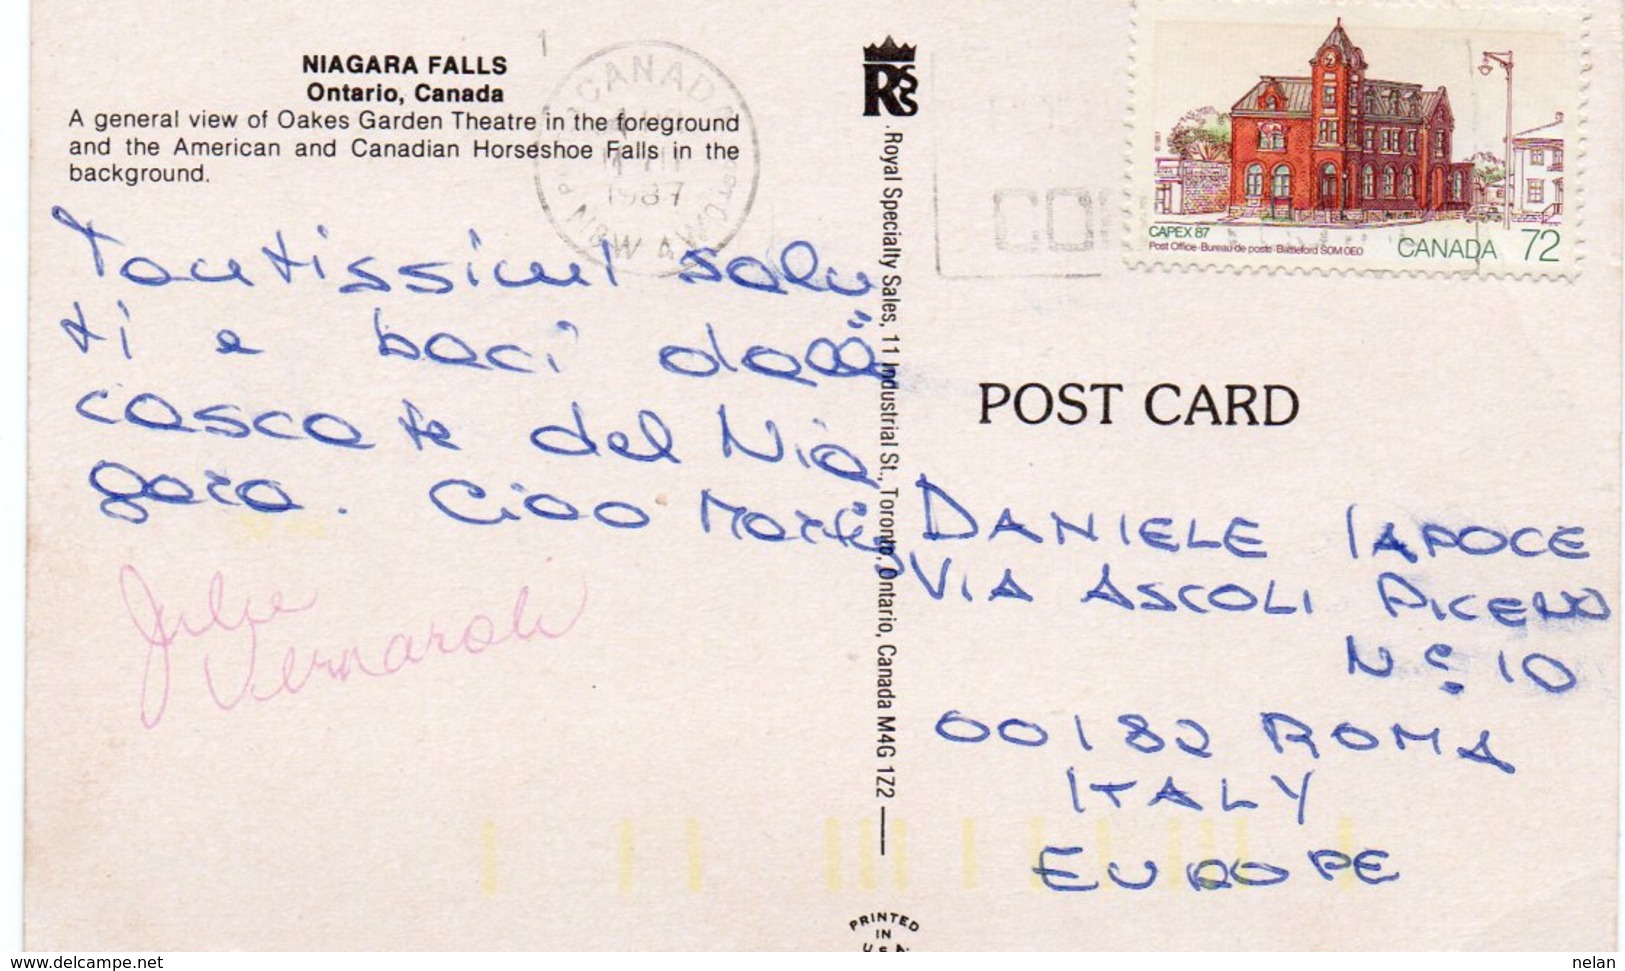 NIAGARA FALLS
Ontario, Canada
A general view of Oakes Garden Theatre in the foreground
and the American and Canadian Horseshoe Falls in the
background.
Tantissimi salu
ti e baci dalle
cascate del Nia
gara. Ciao
Julie
Vernaroli
RSS
Royal Specialty Sales, 11 Industrial St., Toronto, Ontario, Canada M4G 1Z2
PRINTED
IN
CANADA
1987
CAPEX 87
Post Office · Bureau de poste · Battleford S0M 0E0
CANADA 72
POST CARD
DANIELE IAPOCE
VIA ASCOLI PICENO
N° 10
00182 ROMA
ITALY
EUROPE
www.delcampe.net
nelan